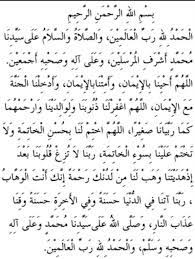 بِسْمِ اللهِ الرَّحْمَنِ الرَّحِيْمِ
الْحَمْدُ للهِ رَبِّ الْعَالَمِيْنَ، وَالصَّلَاةُ وَالسَّلَامُ عَلَى سَيِّدِنَا
مُحَمَّدٍ أَشْرَفِ الْمُرْسَلِيْنَ، وَعَلَى آلِهِ وَصَحْبِهِ أَجْمَعِيْنَ.
اللَّهُمَّ أَحْيِنَا بِالْإِيْمَانِ، وَأَمِتْنَا بِالْإِيْمَانِ، وَأَدْخِلْنَا الْجَنَّةَ
مَعَ الْإِيْمَانِ، اللَّهُمَّ اغْفِرْ لَنَا ذُنُوْبَنَا وَلِوَالِدِيْنَا وَارْحَمْهُمَا
كَمَا رَبَّيَانَا صَغِيْرًا، اللَّهُمَّ اخْتِمْ لَنَا بِحُسْنِ الْخَاتِمَةِ وَلَا
تَخْتِمْ عَلَيْنَا بِسُوْءِ الْخَاتِمَةِ، رَبَّنَا لَا تُزِغْ قُلُوْبَنَا بَعْدَ
إِذْ هَدَيْتَنَا وَهَبْ لَنَا مِنْ لَدُنْكَ رَحْمَةً إِنَّكَ أَنْتَ الْوَهَّابُ
، رَبَّنَا آتِنَا فِي الدُّنْيَا حَسَنَةً وَفِي الْآخِرَةِ حَسَنَةً وَقِنَا
عَذَابَ النَّارِ، وَصَلَّى اللهُ عَلَى سَيِّدِنَا مُحَمَّدٍ وَعَلَى آلِهِ
وَصَحْبِهِ وَسَلَّمَ، وَالْحَمْدُ للهِ رَبِّ الْعَالَمِيْنَ.